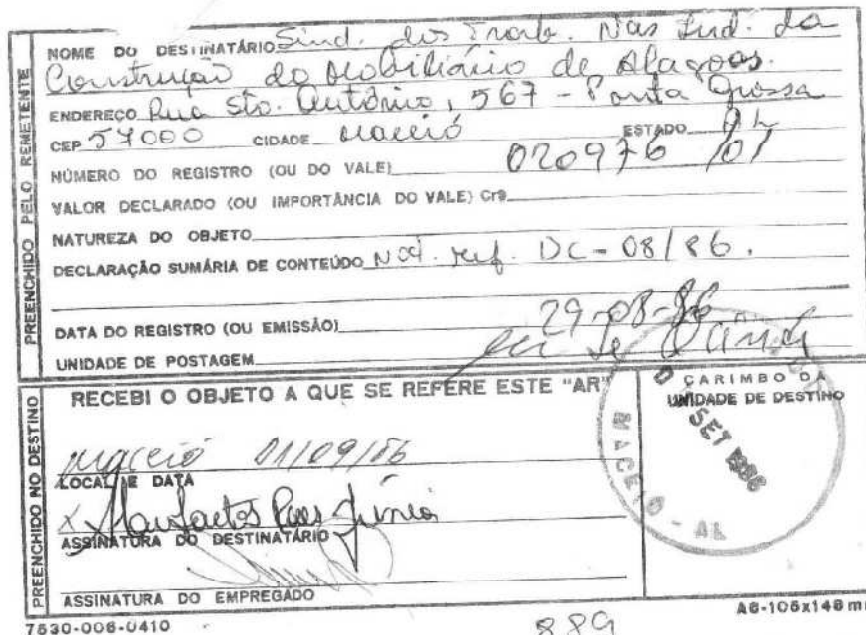 NOME DO DESTINATÁRIO Sind. dos Trab. Nas Ind. da
Construção do Mobiliário de Alagoas.
ENDEREÇO Rua Sto. Antônio, 567 - Ponta Grossa
CEP 57000 CIDADE Maceió ESTADO AL
NÚMERO DO REGISTRO (OU DO VALE) 020976 /01
VALOR DECLARADO (OU IMPORTÂNCIA DO VALE) Cr$
NATUREZA DO OBJETO
DECLARAÇÃO SUMÁRIA DE CONTEÚDO Not. ref. DC-08/86.
DATA DO REGISTRO (OU EMISSÃO) 29-08-86
UNIDADE DE POSTAGEM
PREENCHIDO PELO REMETENTE
RECEBI O OBJETO A QUE SE REFERE ESTE "AR"
CARIMBO DA
UNIDADE DE DESTINO
SET 1986
MACEIÓ - AL
Maceió 01/09/86
LOCAL E DATA
X
Júnior
ASSINATURA DO DESTINATÁRIO
ASSINATURA DO EMPREGADO
PREENCHIDO NO DESTINO
7530-006-0410
889
A6-105x148 m